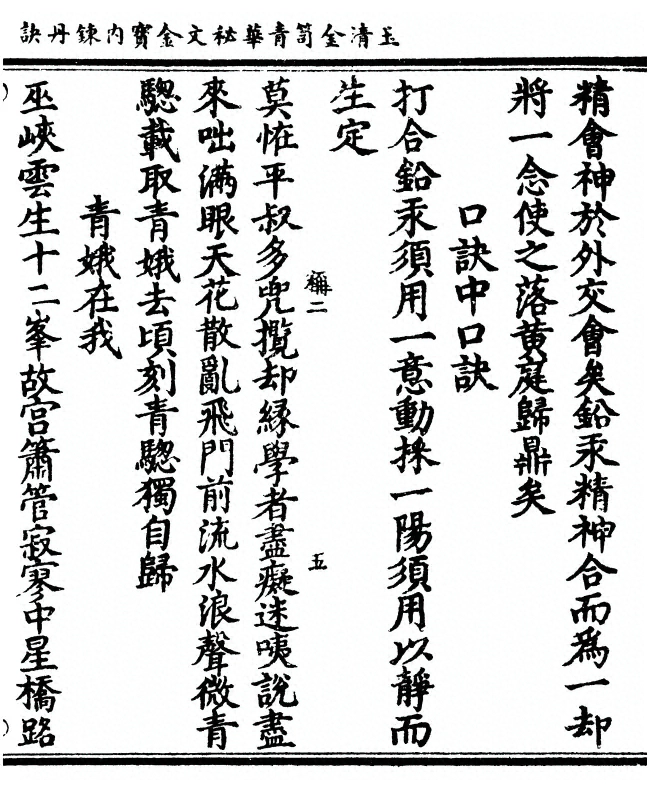 玉清金笥青華祕文金寶內鍊丹訣
精會神於外交會矣鉛汞精神合而為一却
將一念使之落黃庭歸鼎矣
口訣中口訣
打合鉛汞須用一意動採一陽須用以靜而
生定
莫恠平叔多兜攬却緣學者盡癡迷咦說盡
來咄滿眼天花散亂飛門前流水浪聲微青
驄載取青娥去頃刻青驄獨自歸
青娥在我
巫峽雲生十二峯故宮簫管寂寥中星橋路
稱二
五